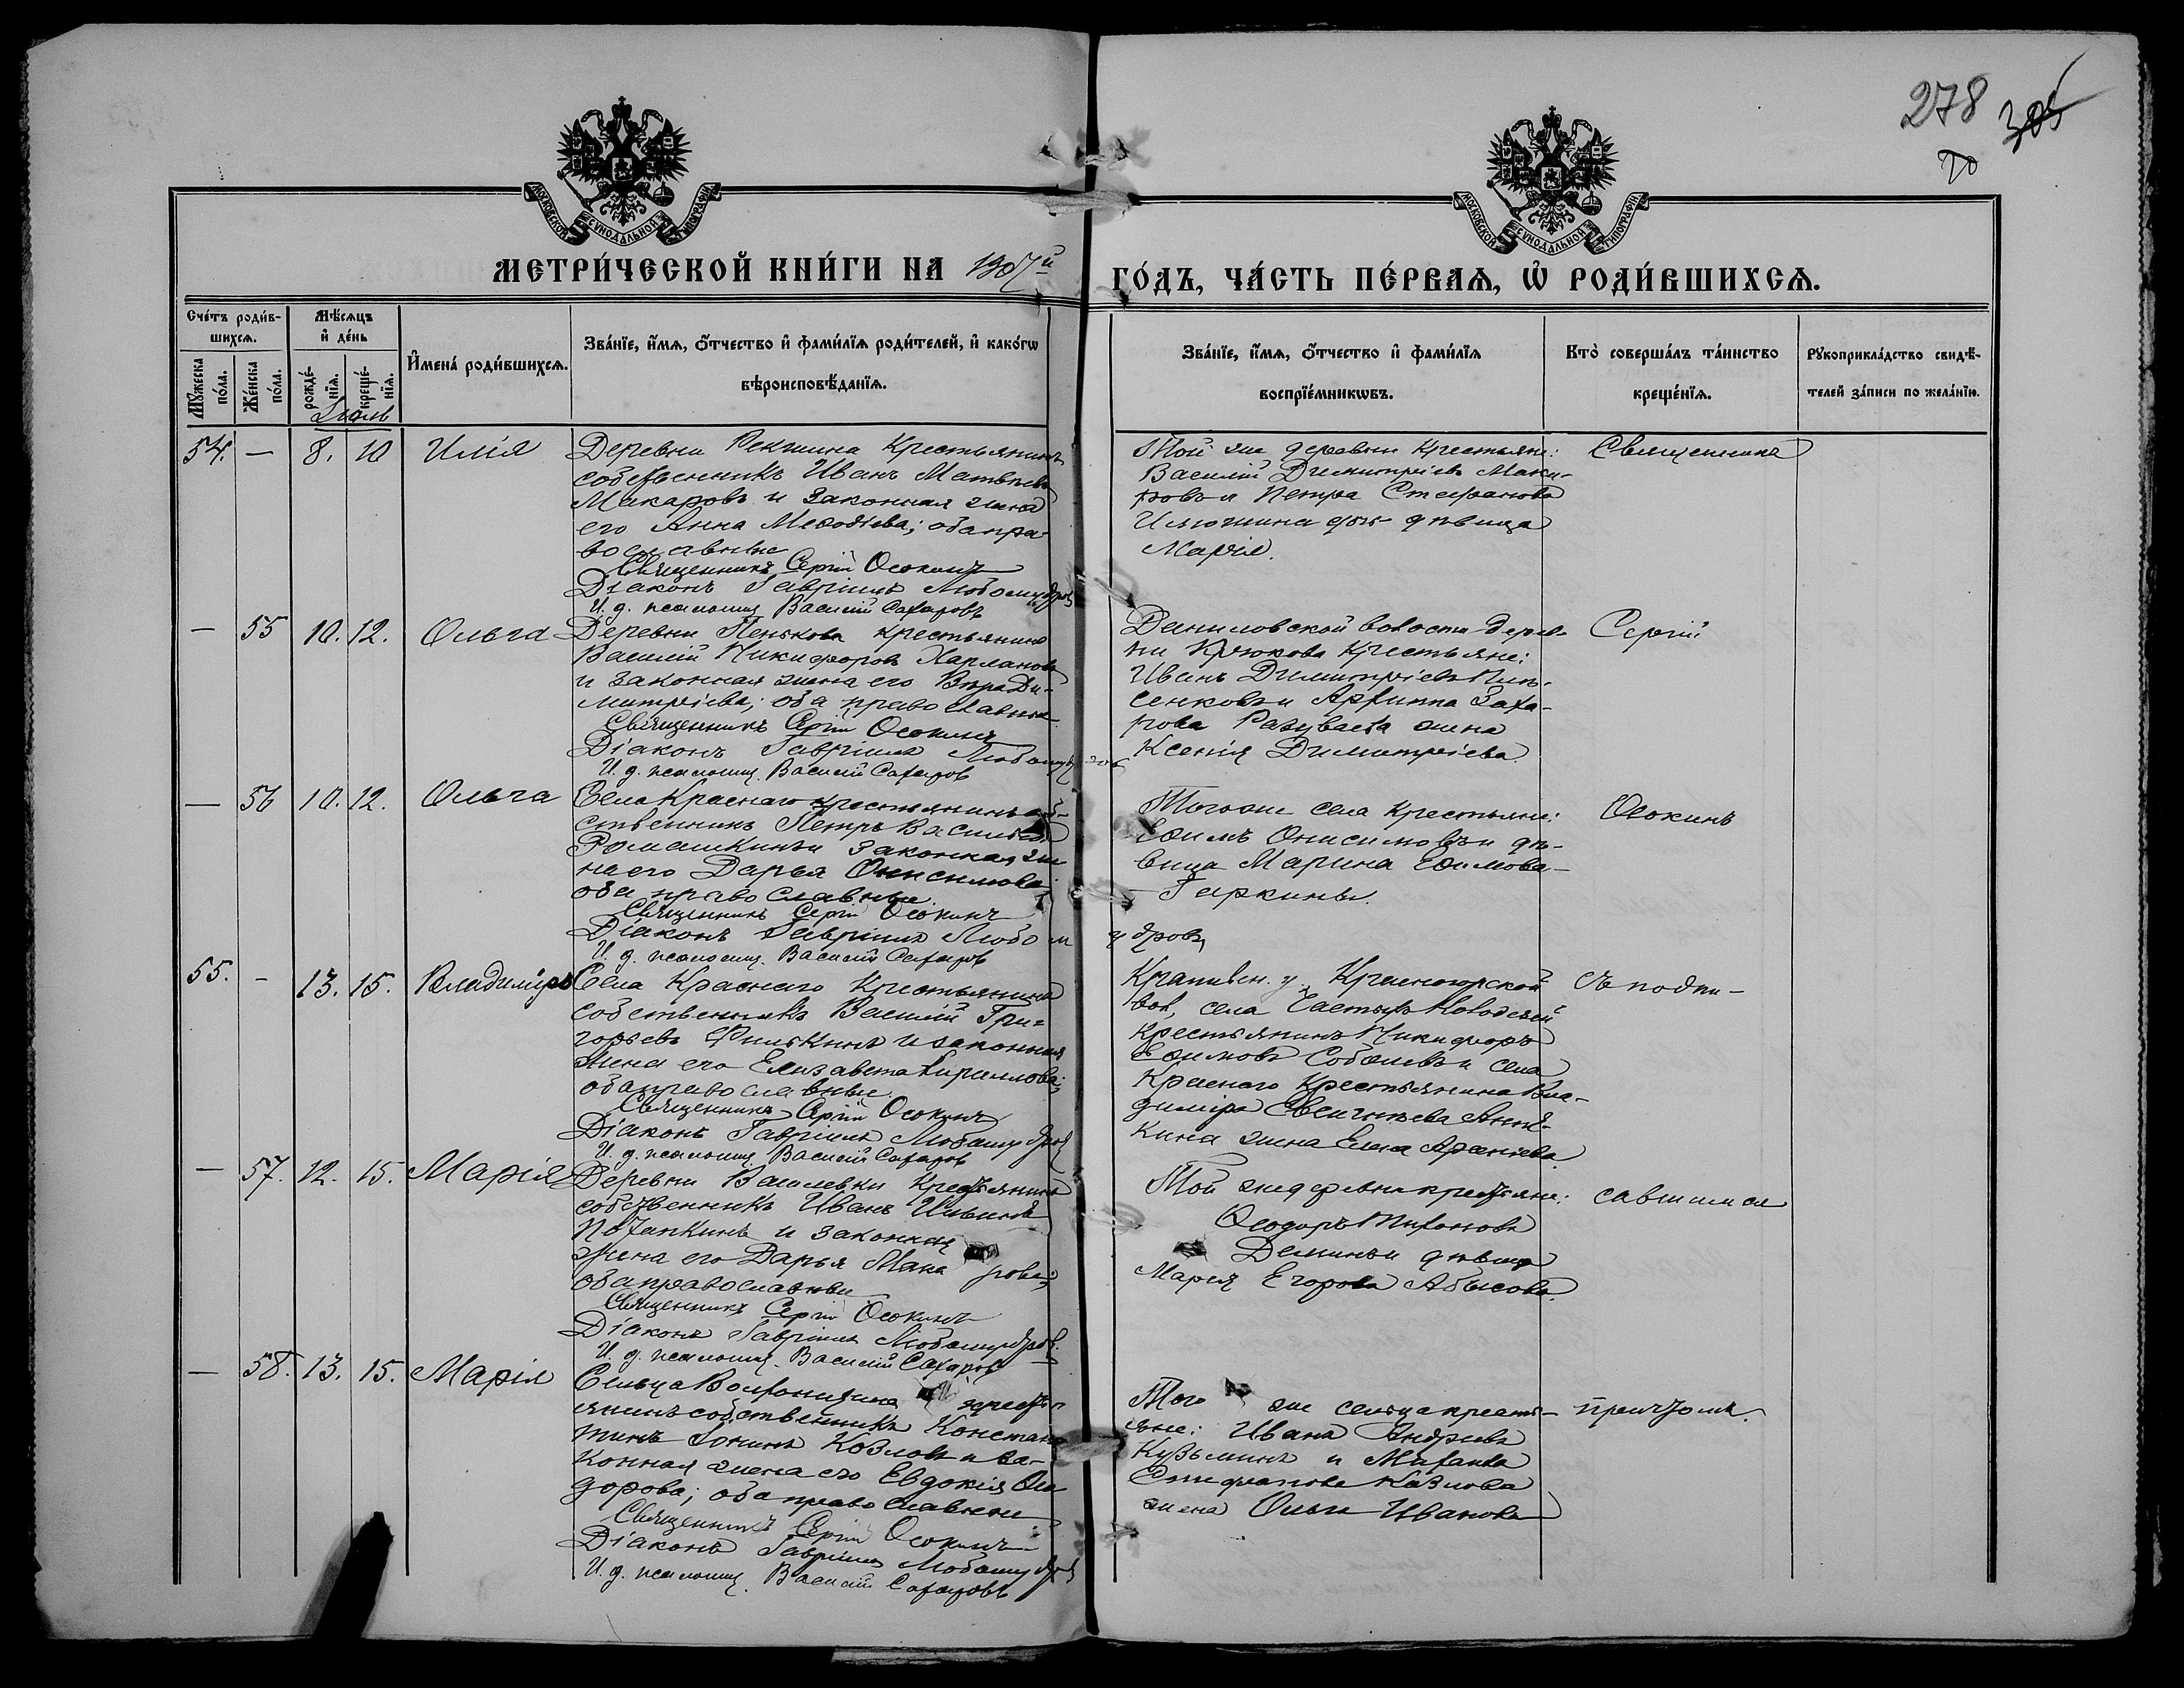 278 305
20
МОСКОВСКОЙ СѴНОДАЛЬНОЙ ТИПОГРАФІИ
МОСКОВСКОЙ СѴНОДАЛЬНОЙ ТИПОГРАФІИ
МЕТРИ́ЧЕСКОЙ КНИ́ГИ НА 1907й ГО́ДЪ, ЧА́СТЬ ПЕ́РВАѦ, Ѡ҆ РОДИ́ВШИХСѦ.
Сче́тъ роди́в-
шихсѧ.
Мꙋ́жеска по́ла.
Же́нска по́ла.
Мѣ́сѧцъ и҆ де́нь
рожде́-нїѧ.
креще́-нїѧ.
Іюль
И҆мена̀ роди́вшихсѧ.
Зва́нїе, и҆́мѧ, ѻ҆́тчество и҆ фами́лїѧ роди́телей, и҆ како́гѡ
вѣроисповѣ́данїѧ.
Зва́нїе, и҆́мѧ, ѻ҆́тчество и҆ фами́лїѧ
воспрїе́мникѡвъ.
Кто̀ соверша́лъ та́инство
креще́нїѧ.
Рꙋкоприкла́дство свидѣ́-
телей за́писи по жела́нїю.
54. — 8. 10 Илія
Деревни Рекшина крестьянинъ
собственникъ Иванъ Матвѣевъ
Макаровъ и законная жена
его Анна Меѳодіева; оба пра
вославные
Священникъ Сергій Осокинъ
Діаконъ Гавріилъ Любомудровъ
И. д. псаломщ. Василій Сахаровъ
Той же деревни крестьяне:
Василій Димитріевъ Мака-
ровъ и Петра Стефанова
Илюшина дочь дѣвица
Марія.
Священникъ
— 55 10. 12. Ольга
Деревни Пенькова крестьянинъ
Василій Никифоровъ Харламовъ
и законная жена его Вѣра Ди-
митріева; оба православные
Священникъ Сергій Осокинъ
Діаконъ Гавріилъ Любомудров
И. д. псаломщ. Василій Сахаров
Даниловской волости дерев-
ни Крюкова крестьяне:
Иванъ Димитріевъ
сенковъ и Архиппа Заха-
рова Разуваева жена
Ксенія Димитріева.
Сергій
— 56 10. 12. Ольга
Села Краснаго крестьянинъ соб-
ственникъ Петръ Васильевъ
Ромашкинъ и законная же
на его Дарья Онисимова;
оба православные.
Священникъ Сергій Осокинъ
Діаконъ Гавріилъ Любомудровъ
И. д. псаломщ. Василій Сахаров
Того же села крестьяне:
Ефимъ Онисимовъ и дѣ-
вица Марина Ефимова
Гаркины.
Осокинъ
55. — 13. 15. Владиміръ
Села Краснаго крестьянинъ
собственникъ Василій Гри-
горьевъ Филькинъ и законная
жена его Елизавета Кириллова;
оба православные.
Священникъ Сергій Осокинъ
Діаконъ Гавріилъ Любомудров
И. д. псаломщ. Василій Сахаров
Крапивен. у. Красногорской
вол, села Частыхъ Колодезей
крестьянинъ Никифоръ
Ефимовъ Соболевъ и села
Краснаго крестьянина Вла-
диміра Евсигнѣева
кина жена Елена
съ подпи-
— 57. 12. 15. Марія
Деревни Василевки крестьянинъ
собственникъ Иванъ Ильинъ
Потапкинъ и законная
жена его Дарья Мака рова;
оба православные
Священникъ Сергій Осокинъ
Діаконъ Гавріилъ Любомудров.
И. д. псаломщ. Василій Сахаров
Той же деревни крестьяне:
Ѳеодоръ Тихоновъ
Деминъ и дѣвица
Марія Егорова Абысова.
савшимся
— 58. 13. 15. Марія
Сельца крестья
янинъ собственникъ Констан
тинъ Козловъ и за-
конная жена его Евдокія Ѳео
дорова; оба православные
Священникъ Сергій Осокинъ
Діаконъ Гавріилъ Любомудров
И. д. псаломщ. Василій Сахаровъ
Того же сельца крестья-
яне: Иванъ Андреевъ
Кузьминъ и Михаила
Стефанова Козлова
жена Ольга Иванова
причтомъ.